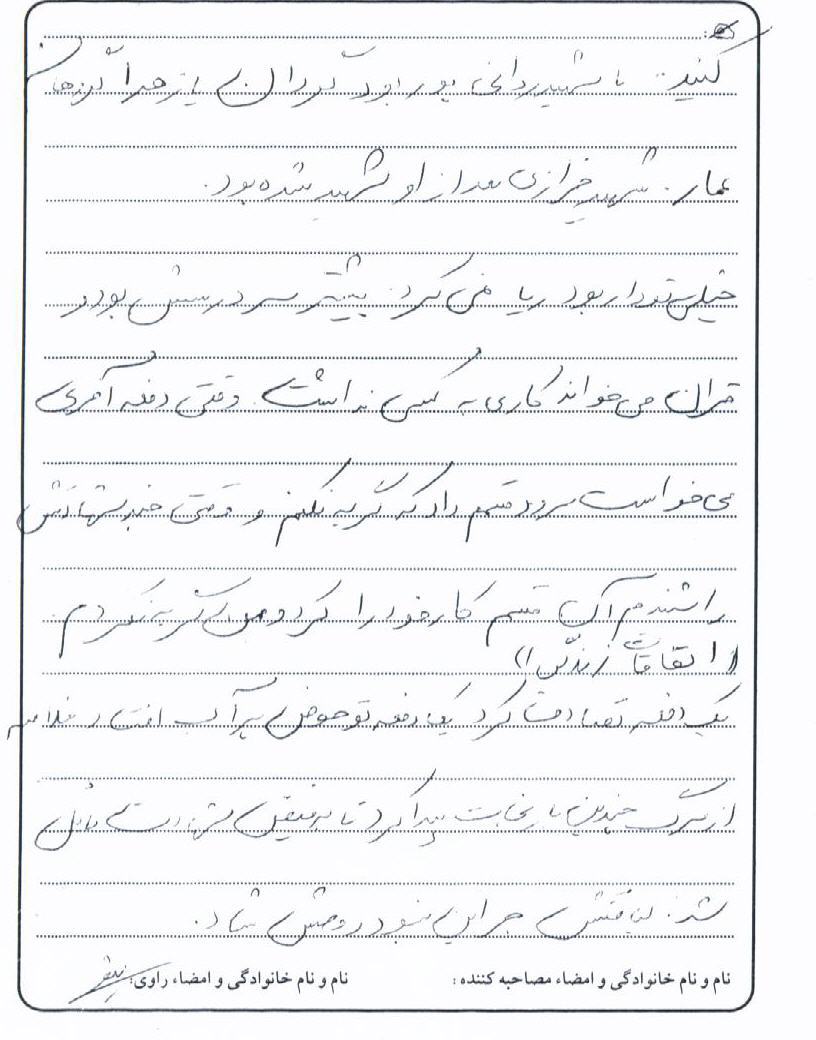 کنید. با شهید ردانی پور بود گردان یا زهرا گردان
عمار. شهید خرازی بعد از او شهید شده بود.
خیلی تودار بود ریا نمی کرد. بیشتر سر درسش بود و
قران می خواند کاری به کسی نداشت. وقتی دفعه آخری
می خواست برود قسم داد که گریه نکنم و وقتی خبر شهادتش
را شنیدم آن قسم کار خود را کرد و من گریه نکردم.
(( اتفاقات زندگی ))
یک دفعه تصادف کرد یک دفعه تو حوض پر آب افتاد خلاصه
از مرگ چندین بار نجات پیدا کرد تا به فیض شهادت نائل
شد. لیاقتش جز این نبود روحش شاد.
نام و نام خانوادگی و امضاء مصاحبه کننده : نام و نام خانوادگی و امضاء راوی: